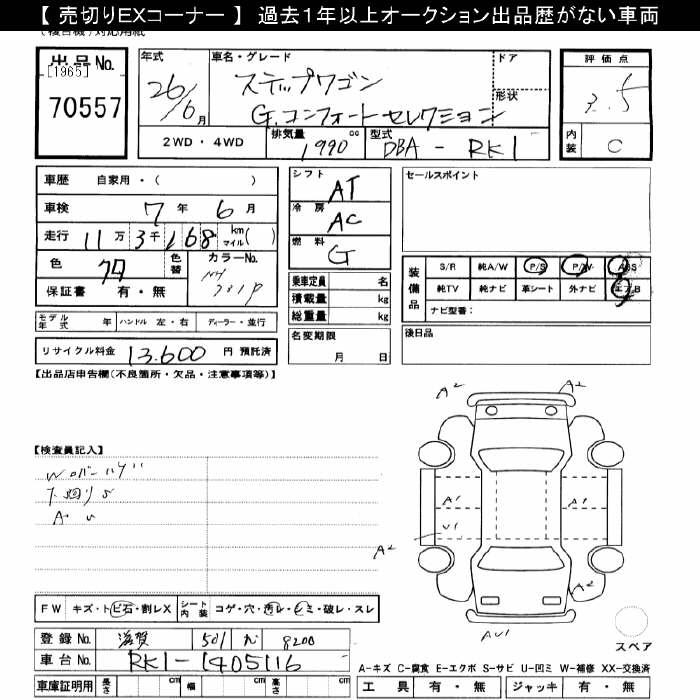 【 売切りEXコーナー 】 過去１年以上オークション出品歴がない車両
出品No.
[1965]
70557
年式
26/6月
車名・グレード
ステップワゴン
G.コンフォートセレクション
ドア
形状
2WD・4WD
排気量 1990 cc
型式 DBA-RK1
評価点
3.5
内装 C
車歴 自家用・( )
車検 7年 6月
走行 11万3千168 km マイル( )
色 クロ
色替
カラーNo.
保証書 有・無
モデル年式 年 ハンドル 左・右 ディーラー・並行
リサイクル料金 13.600 円 預託済
シフト AT
冷房 AC
燃料 G
乗車定員 名
積載量 kg
総重量 kg
名変期限
月 日
セールスポイント
装備品
S/R 純A/W P/S P/W ABS
純TV 純ナビ 革シート 外ナビ エアB
ナビ型番：
後日品
【出品店申告欄(不良箇所・欠品・注意事項等)】
【検査員記入】
A2 A2
A1 A1
U1
A2
A2
AU1
スペア
FW キズ・トビ石・割レX シート内装 コゲ・穴・汚レ・シミ・破レ・スレ
登録No. 滋賀 501 8200
車台No. RK1-1405116
車庫証明用 長さ cm 幅 cm 高さ cm
A-キズ C-腐食 E-エクボ S-サビ U-凹ミ W-補修 XX-交換済
工具 有・無 ジャッキ 有・無